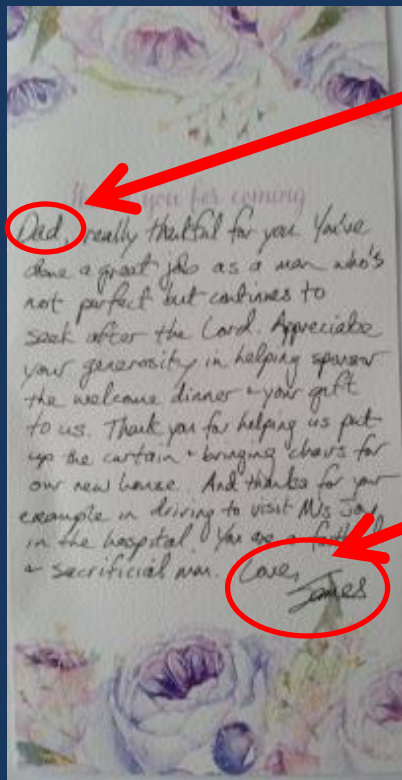 Thank you for coming
Dad, really thankful for you. You've
done a great job as a man who's
not perfect but continues to
seek after the Lord. Appreciate
your generosity in helping sponsor
the welcome dinner + your gift
to us. Thank you for helping us put
up the curtain + bringing chairs for
our new house. And thanks for your
example in driving to visit Ms Joy
in the hospital. You are a faithful
+ sacrificial man. Love,
James